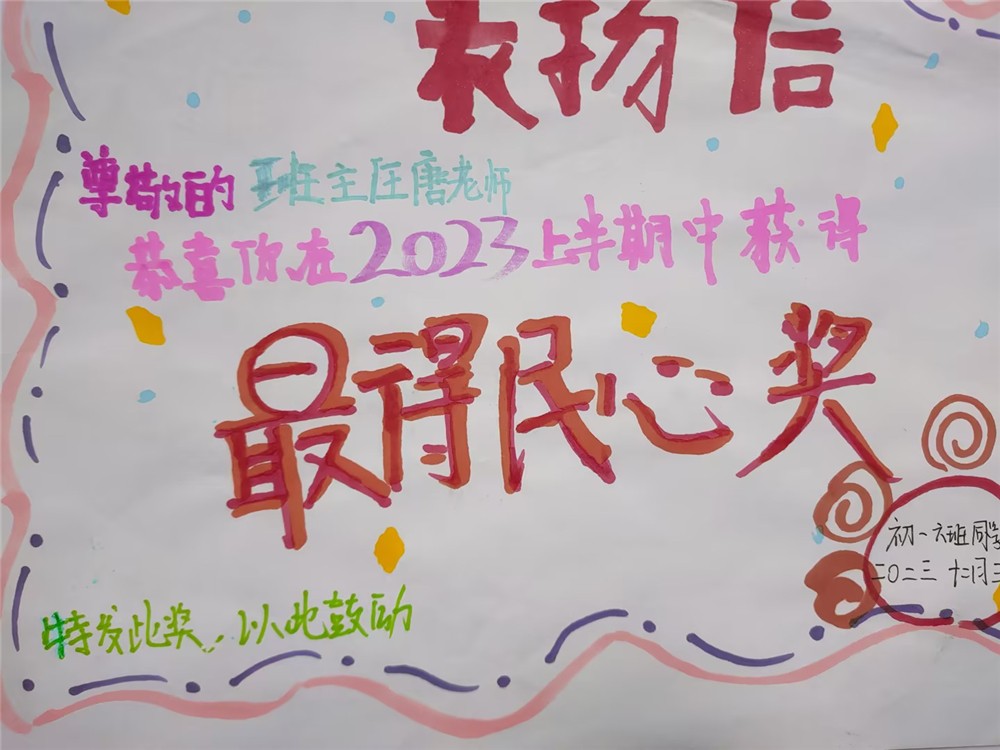 表扬信
尊敬的 班主任唐老师
恭喜你在2023上半期中获得
最得民心奖
初一六班同学
二〇二三 十二月
特发此奖，以此鼓动